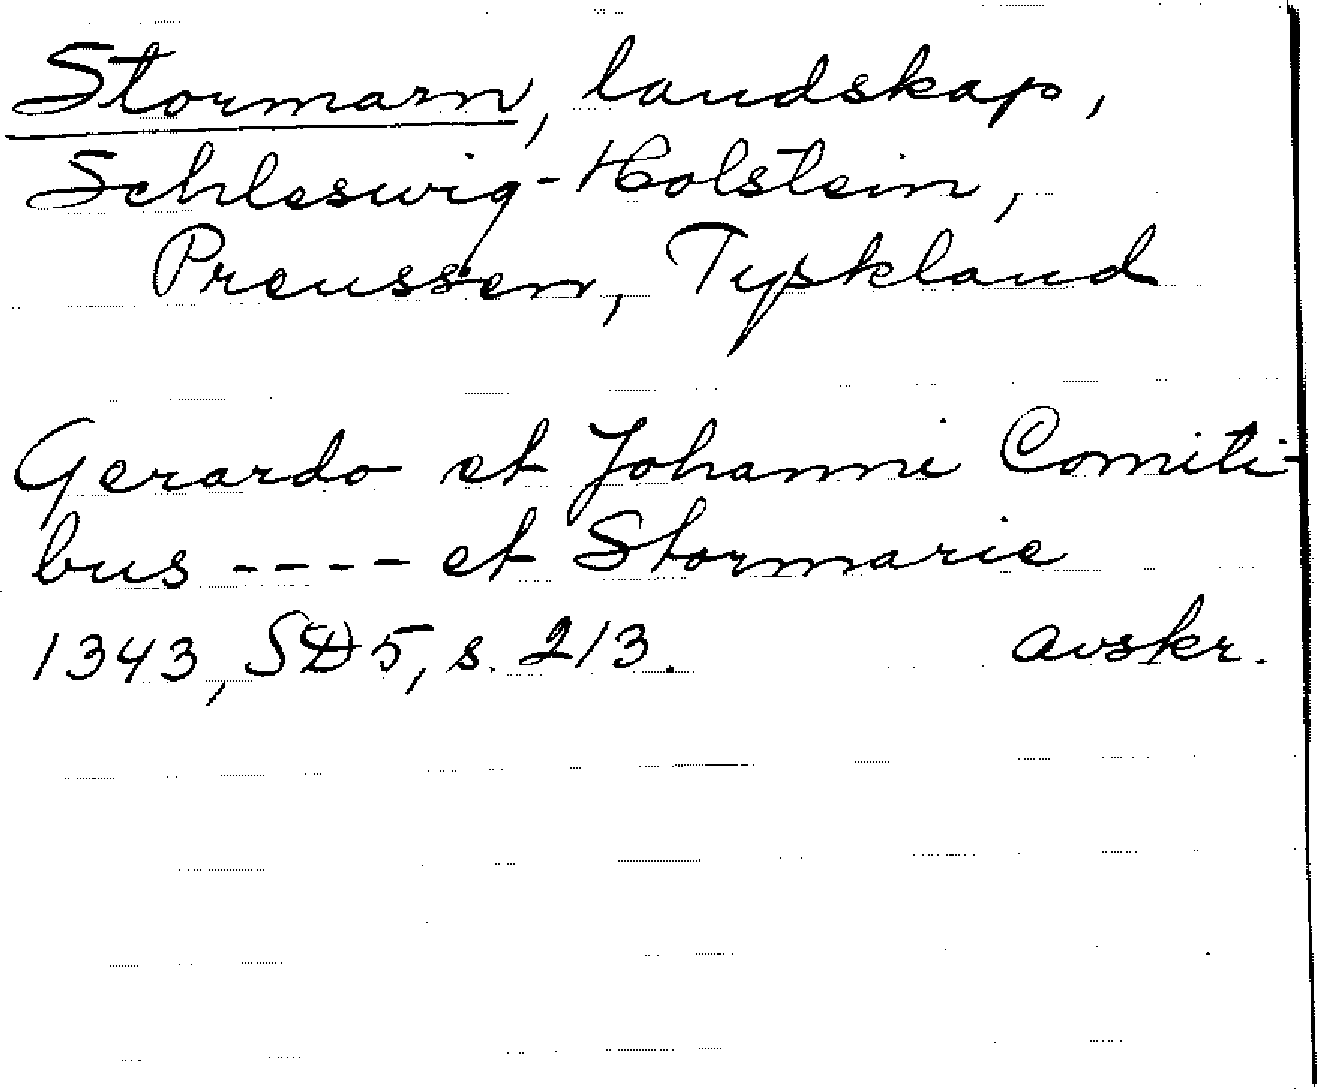 Stormarn, landskap,
Schleswig-Holstein,
Preussen, Tyskland
Gerardo et Johanni Comiti-
bus ---- et Stormarie
1343, SD5, s. 213. avskr.